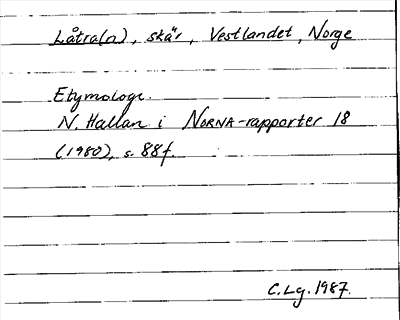 Låtra(n), skär, Vestlandet, Norge
Etymologi.
N. Hallan i NORNA-rapporter 18
(1980), s. 88f.
C.Lg. 1987.